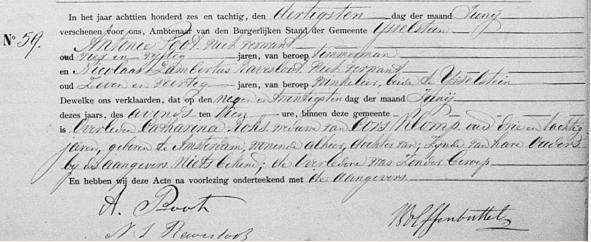 In het jaar achttien honderd zes en tachtig, den dertigsten dag der maand Junij
verschenen voor ons, Ambtenaar van den Burgerlijken Stand der Gemeente IJsselstein
N° 59. Antonie Poot, niet verwant
oud zes en vijftig jaren, van beroep timmerman
en Nicolaas Lambertus niet verwant
oud zeven en veertig jaren, van beroep winkelier, beide te IJsselstein
Dewelke ons verklaarden, dat op den negen en twintigsten dag der maand Junij
dezes jaars, des avonds ten tien ure, binnen deze gemeente
is overleden Catharina vrouw van Cors Klomp, oud drie en tachtig
jaren, geboren te Amsterdam, wonende alhier, dochter van, zijnde van hare ouders
bij de aangevers niets bekend; de overledene was zonder beroep
En hebben wij deze Acte na voorlezing onderteekend met de aangevers
A. Poot
N L
Wolffenbuttel